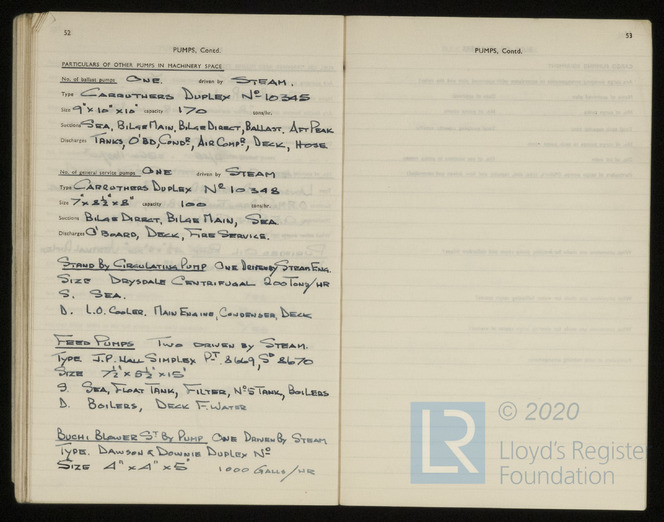 52
PUMPS, Contd.
PARTICULARS OF OTHER PUMPS IN MACHINERY SPACE
No. of ballast pumps ONE. driven by STEAM.
Type CARRUTHERS DUPLEX Nº 10345
Size 9" x 10" x 10" capacity 170 tons/hr.
Suctions SEA, BILGE MAIN, BILGE DIRECT, BALLAST, AFT PEAK
Discharges TANKS, O'BD, CONDR, AIR COMPR, DECK, HOSE
No. of general service pumps ONE driven by STEAM
Type CARRUTHERS DUPLEX Nº 10348
Size 7" x 8½" x 8" capacity 100 tons/hr.
Suctions BILGE DIRECT, BILGE MAIN, SEA
Discharges O'BOARD, DECK, FIRE SERVICE.
STAND BY CIRCULATING PUMP ONE DRIVEN BY STEAM ENG.
SIZE DRYSDALE CENTRIFUGAL 200 TONS/HR
S. SEA.
D. L.O. COOLER, MAIN ENGINE, CONDENSER, DECK
FEED PUMPS TWO DRIVEN BY STEAM.
TYPE. J.P. HALL SIMPLEX PT. 8669, SD 8670
SIZE 7½" x 5½" x 15"
S. SEA, FLOAT TANK, FILTER, Nº 5 TANK, BOILERS
D. BOILERS, DECK F. WATER
BUCHI BLOWER ST BY PUMP ONE DRIVEN BY STEAM
TYPE. DAWSON & DOWNIE DUPLEX Nº
SIZE 4" x 4" x 5" 1000 GALLS/HR
53
PUMPS, Contd.
© 2020
LR
Lloyd's Register
Foundation